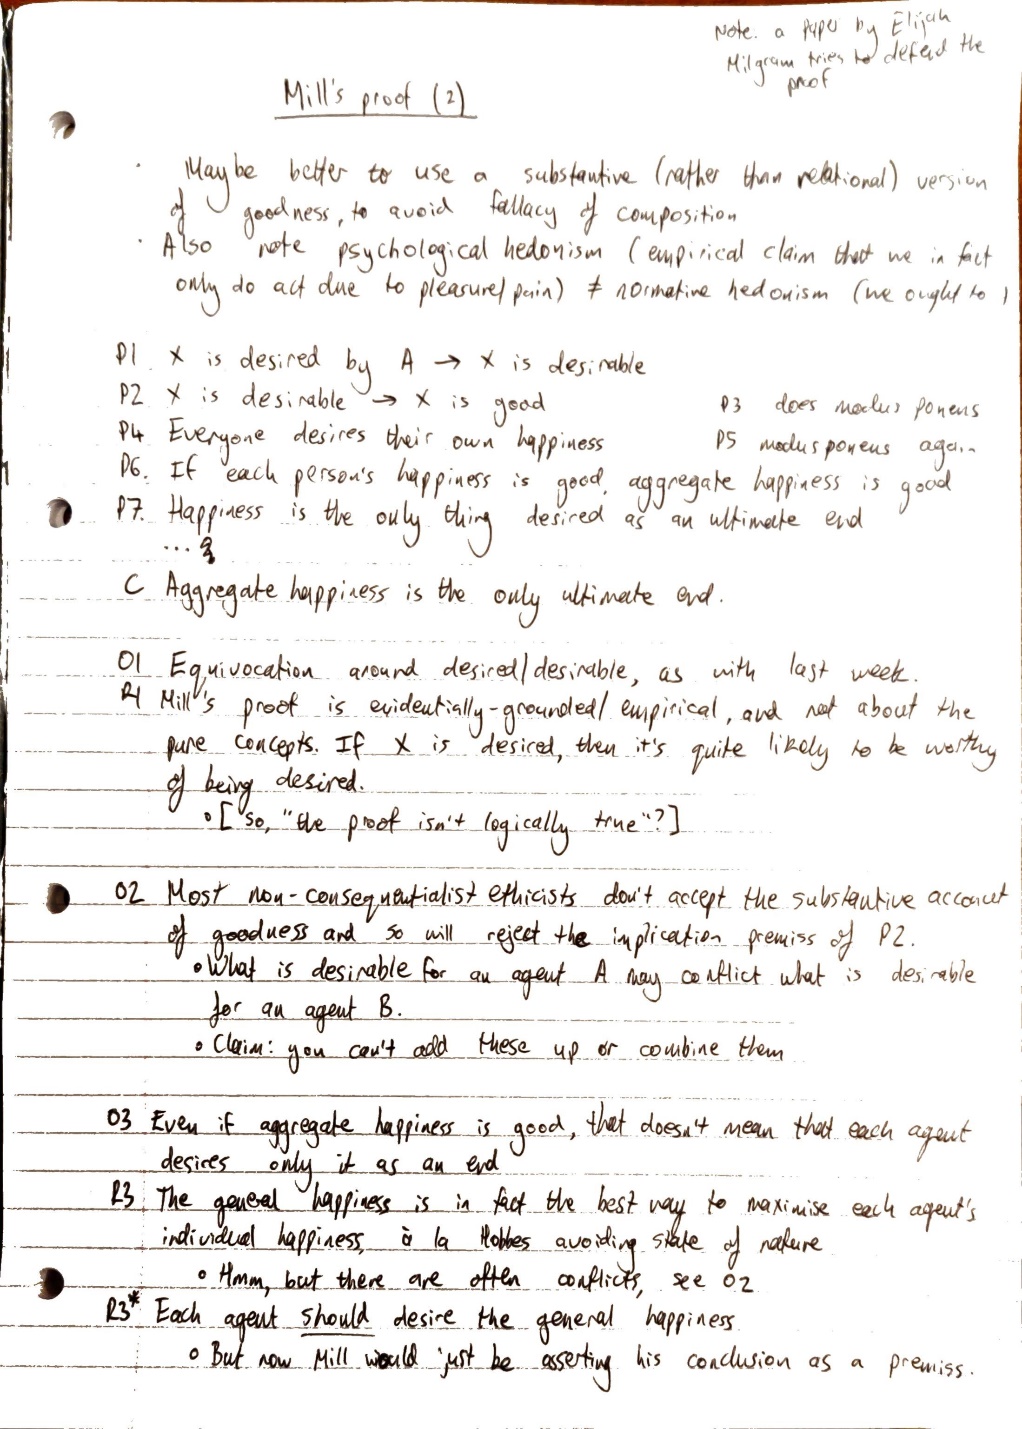 Note. a paper by Elijah
Milgram tries to defend the
proof
Mill's proof (2)
· Maybe better to use a substantive (rather than relational) version
of goodness, to avoid fallacy of composition
· Also note psychological hedonism (empirical claim that we in fact
only do act due to pleasure/pain) ≠ normative hedonism (we ought to)
P1 X is desired by A → X is desirable
P2 X is desirable → X is good P3 does modus ponens
P4 Everyone desires their own happiness P5 modus ponens again
P6. If each person's happiness is good, aggregate happiness is good
P7. Happiness is the only thing desired as an ultimate end
...
C Aggregate happiness is the only ultimate end.
O1 Equivocation around desired/desirable, as with last week.
R1 Mill's proof is evidentially-grounded/empirical, and not about the
pure concepts. If X is desired, then it's quite likely to be worthy
of being desired.
• [so, "the proof isn't logically true"?]
O2 Most non-consequentialist ethicists don't accept the substantive account
of goodness and so will reject the implication premiss of P2.
• What is desirable for an agent A may conflict what is desirable
for an agent B.
• Claim: you can't add these up or combine them
O3 Even if aggregate happiness is good, that doesn't mean that each agent
desires only it as an end
R3 The general happiness is in fact the best way to maximise each agent's
individual happiness, à la Hobbes avoiding state of nature
• Hmm, but there are often conflicts, see O2
R3* Each agent should desire the general happiness
• But now Mill would just be asserting his conclusion as a premiss.